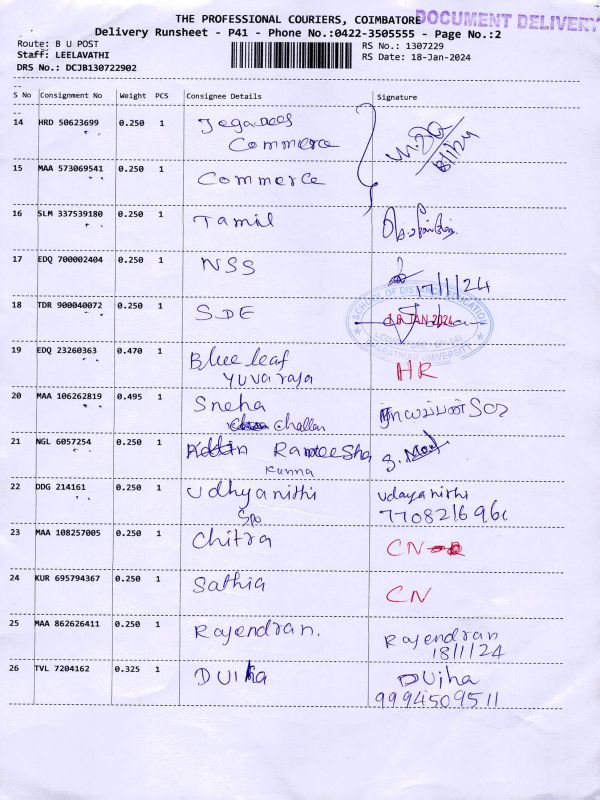 THE PROFESSIONAL COURIERS, COIMBATORE
DOCUMENT DELIVERY
Delivery Runsheet - P41 - Phone No.:0422-3505555 - Page No.:2
Route: B U POST
Staff: LEELAVATHI
DRS No.: DCJB130722902
RS No.: 1307229
RS Date: 18-Jan-2024
S No Consignment No Weight PCS Consignee Details Signature
14 HRD 50623699 0.250 1 Jegarees
Commerce
18/1/24
15 MAA 573069541 0.250 1 Commerce
16 SLM 337539180 0.250 1 Tamil
17 EDQ 700002404 0.250 1 NSS
17/1/24
18 TDR 900040072 0.250 1 SDE
SCHOOL OF DISTANCE EDUCATION
18 JAN 2024
BHARATHIAR UNIVERSITY
19 EDQ 23260363 0.470 1 Blue leaf
Yuvaraja
HR
20 MAA 106262819 0.495 1 Sneha
Challan
21 NGL 6057254 0.250 1 Rameesha
Kunna
22 DDG 214161 0.250 1 Udhyanithi
Udayanithi
23 MAA 108257005 0.250 1 Chitra
CN
24 KUR 695794367 0.250 1 Sathia
CN
25 MAA 862626411 0.250 1 Rajendran.
Rajendran
18/1/24
26 TVL 7204162 0.325 1 DUIha
DUjha
9994509511